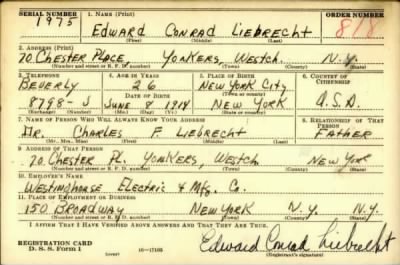 SERIAL NUMBER 1. NAME (Print) ORDER NUMBER
1975 EDWARD CONRAD LIEBRECHT 818
(First) (Middle) (Last)
2. ADDRESS (Print)
70 CHESTER PLACE, YONKERS, WESTCH. N.Y.
(Number and street or R. F. D. number) (Town) (County) (State)
3. TELEPHONE 4. AGE IN YEARS 5. PLACE OF BIRTH 6. COUNTRY OF CITIZENSHIP
BEVERLY 26 NEW YORK CITY
DATE OF BIRTH (Town or county)
8798-J JUNE 8 1914 NEW YORK U.S.A.
(Exchange) (Number) (Mo.) (Day) (Yr.) (State or country)
7. NAME OF PERSON WHO WILL ALWAYS KNOW YOUR ADDRESS 8. RELATIONSHIP OF THAT PERSON
MR. CHARLES F. LIEBRECHT FATHER
(Mr., Mrs., Miss) (First) (Middle) (Last)
9. ADDRESS OF THAT PERSON
70 CHESTER PL. YONKERS, WESTCH NEW YORK
(Number and street or R. F. D. number) (Town) (County) (State)
10. EMPLOYER'S NAME
WESTINGHOUSE ELECTRIC & MFG. CO.
11. PLACE OF EMPLOYMENT OR BUSINESS
150 BROADWAY NEW YORK N.Y. N.Y.
(Number and street or R. F. D. number) (Town) (County) (State)
I AFFIRM THAT I HAVE VERIFIED ABOVE ANSWERS AND THAT THEY ARE TRUE.
REGISTRATION CARD
D. S. S. Form 1 (over) 16-17105 Edward Conrad Liebrecht
(Registrant's signature)